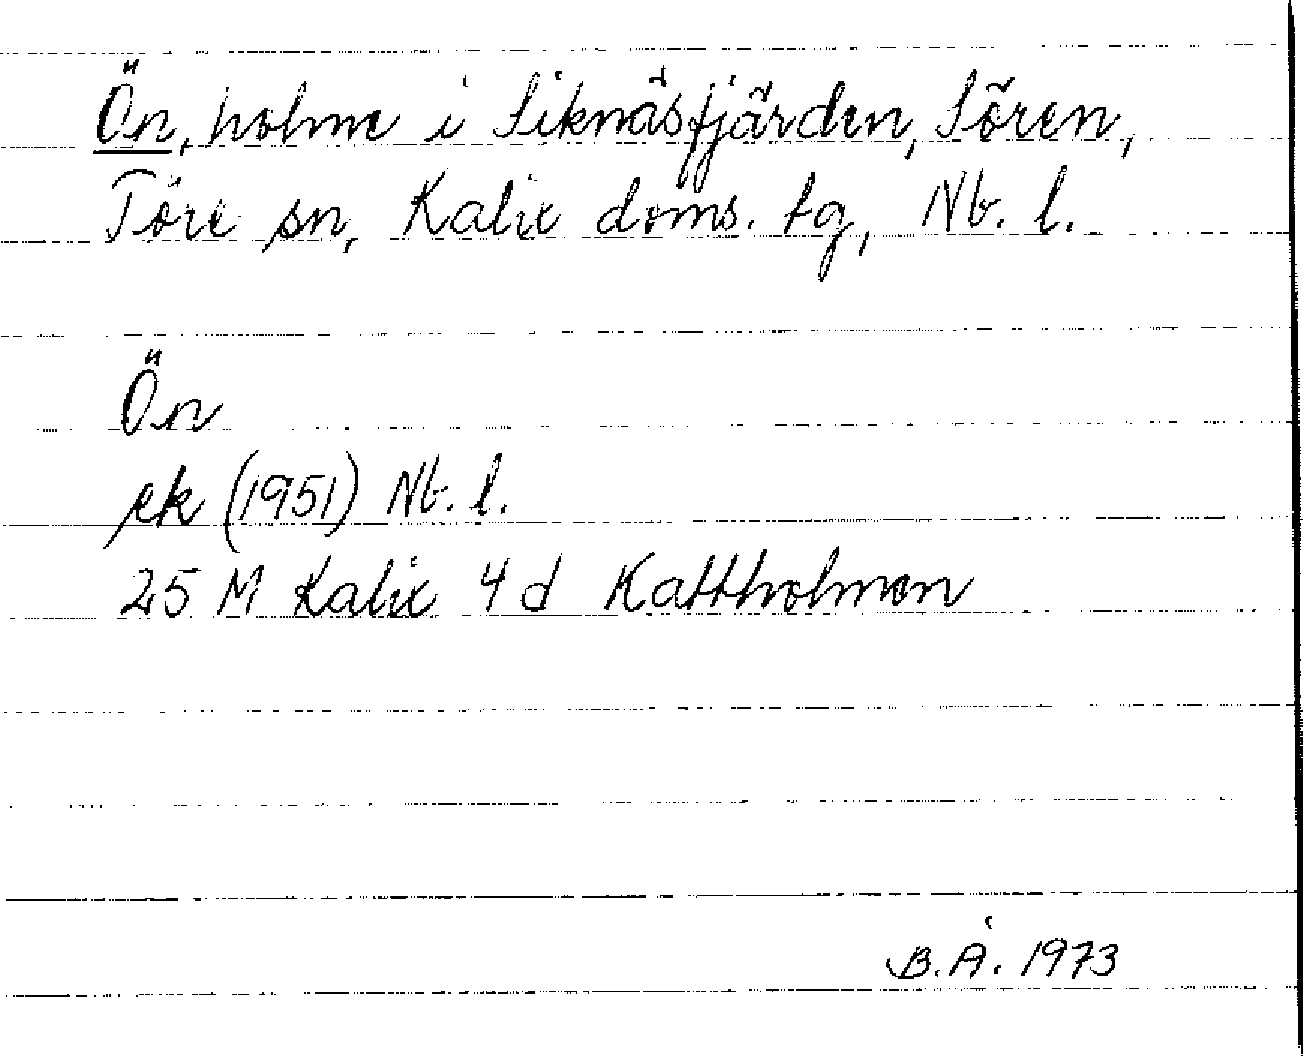 Ön, holme i Siknäsfjärden, Sören,
Töre sn, Kalix doms. tg, Nb. l.
Ön
ek (1951) Nb. l.
25 M Kalix 4 d Kattholmen
B.Å. 1973